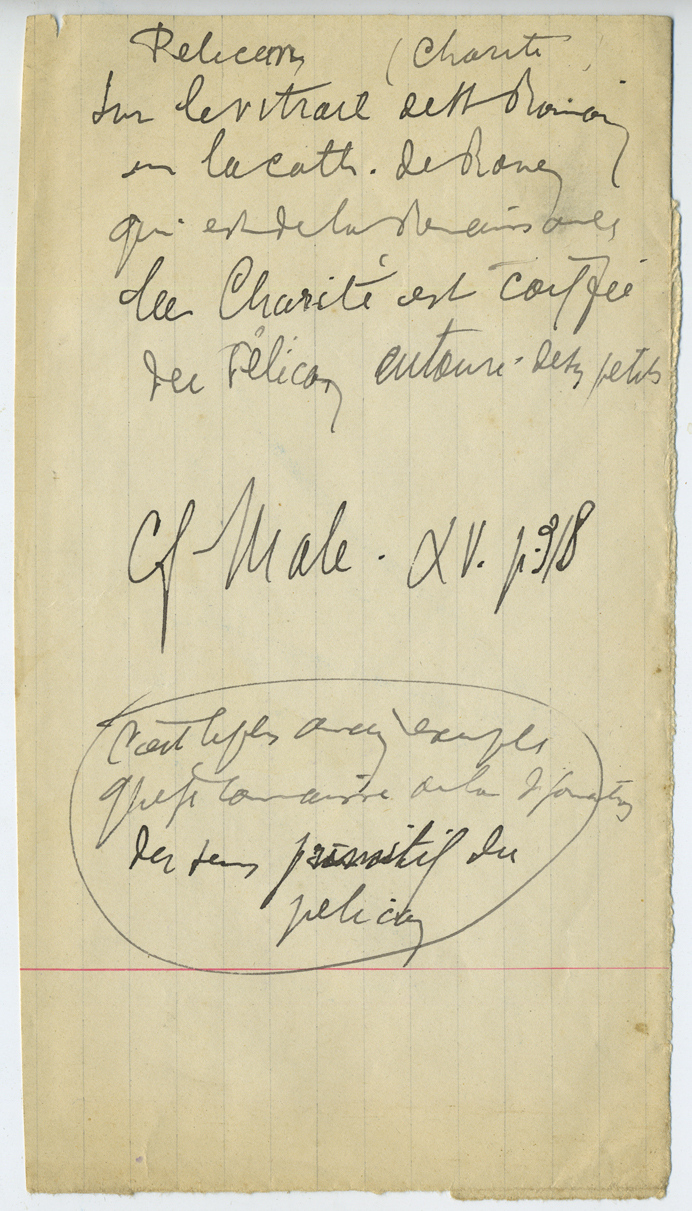 Pelican (Charité)
Sur le vitrail de St Romain
en la cath. de Rouen
qui est de la Renaissance
la Charité est coiffée
du Pélican entouré de ses petits
Cf Male. XV. p. 318
C'est le plus ancien exemple
que je connaisse de la
du sens primitif du
pelican